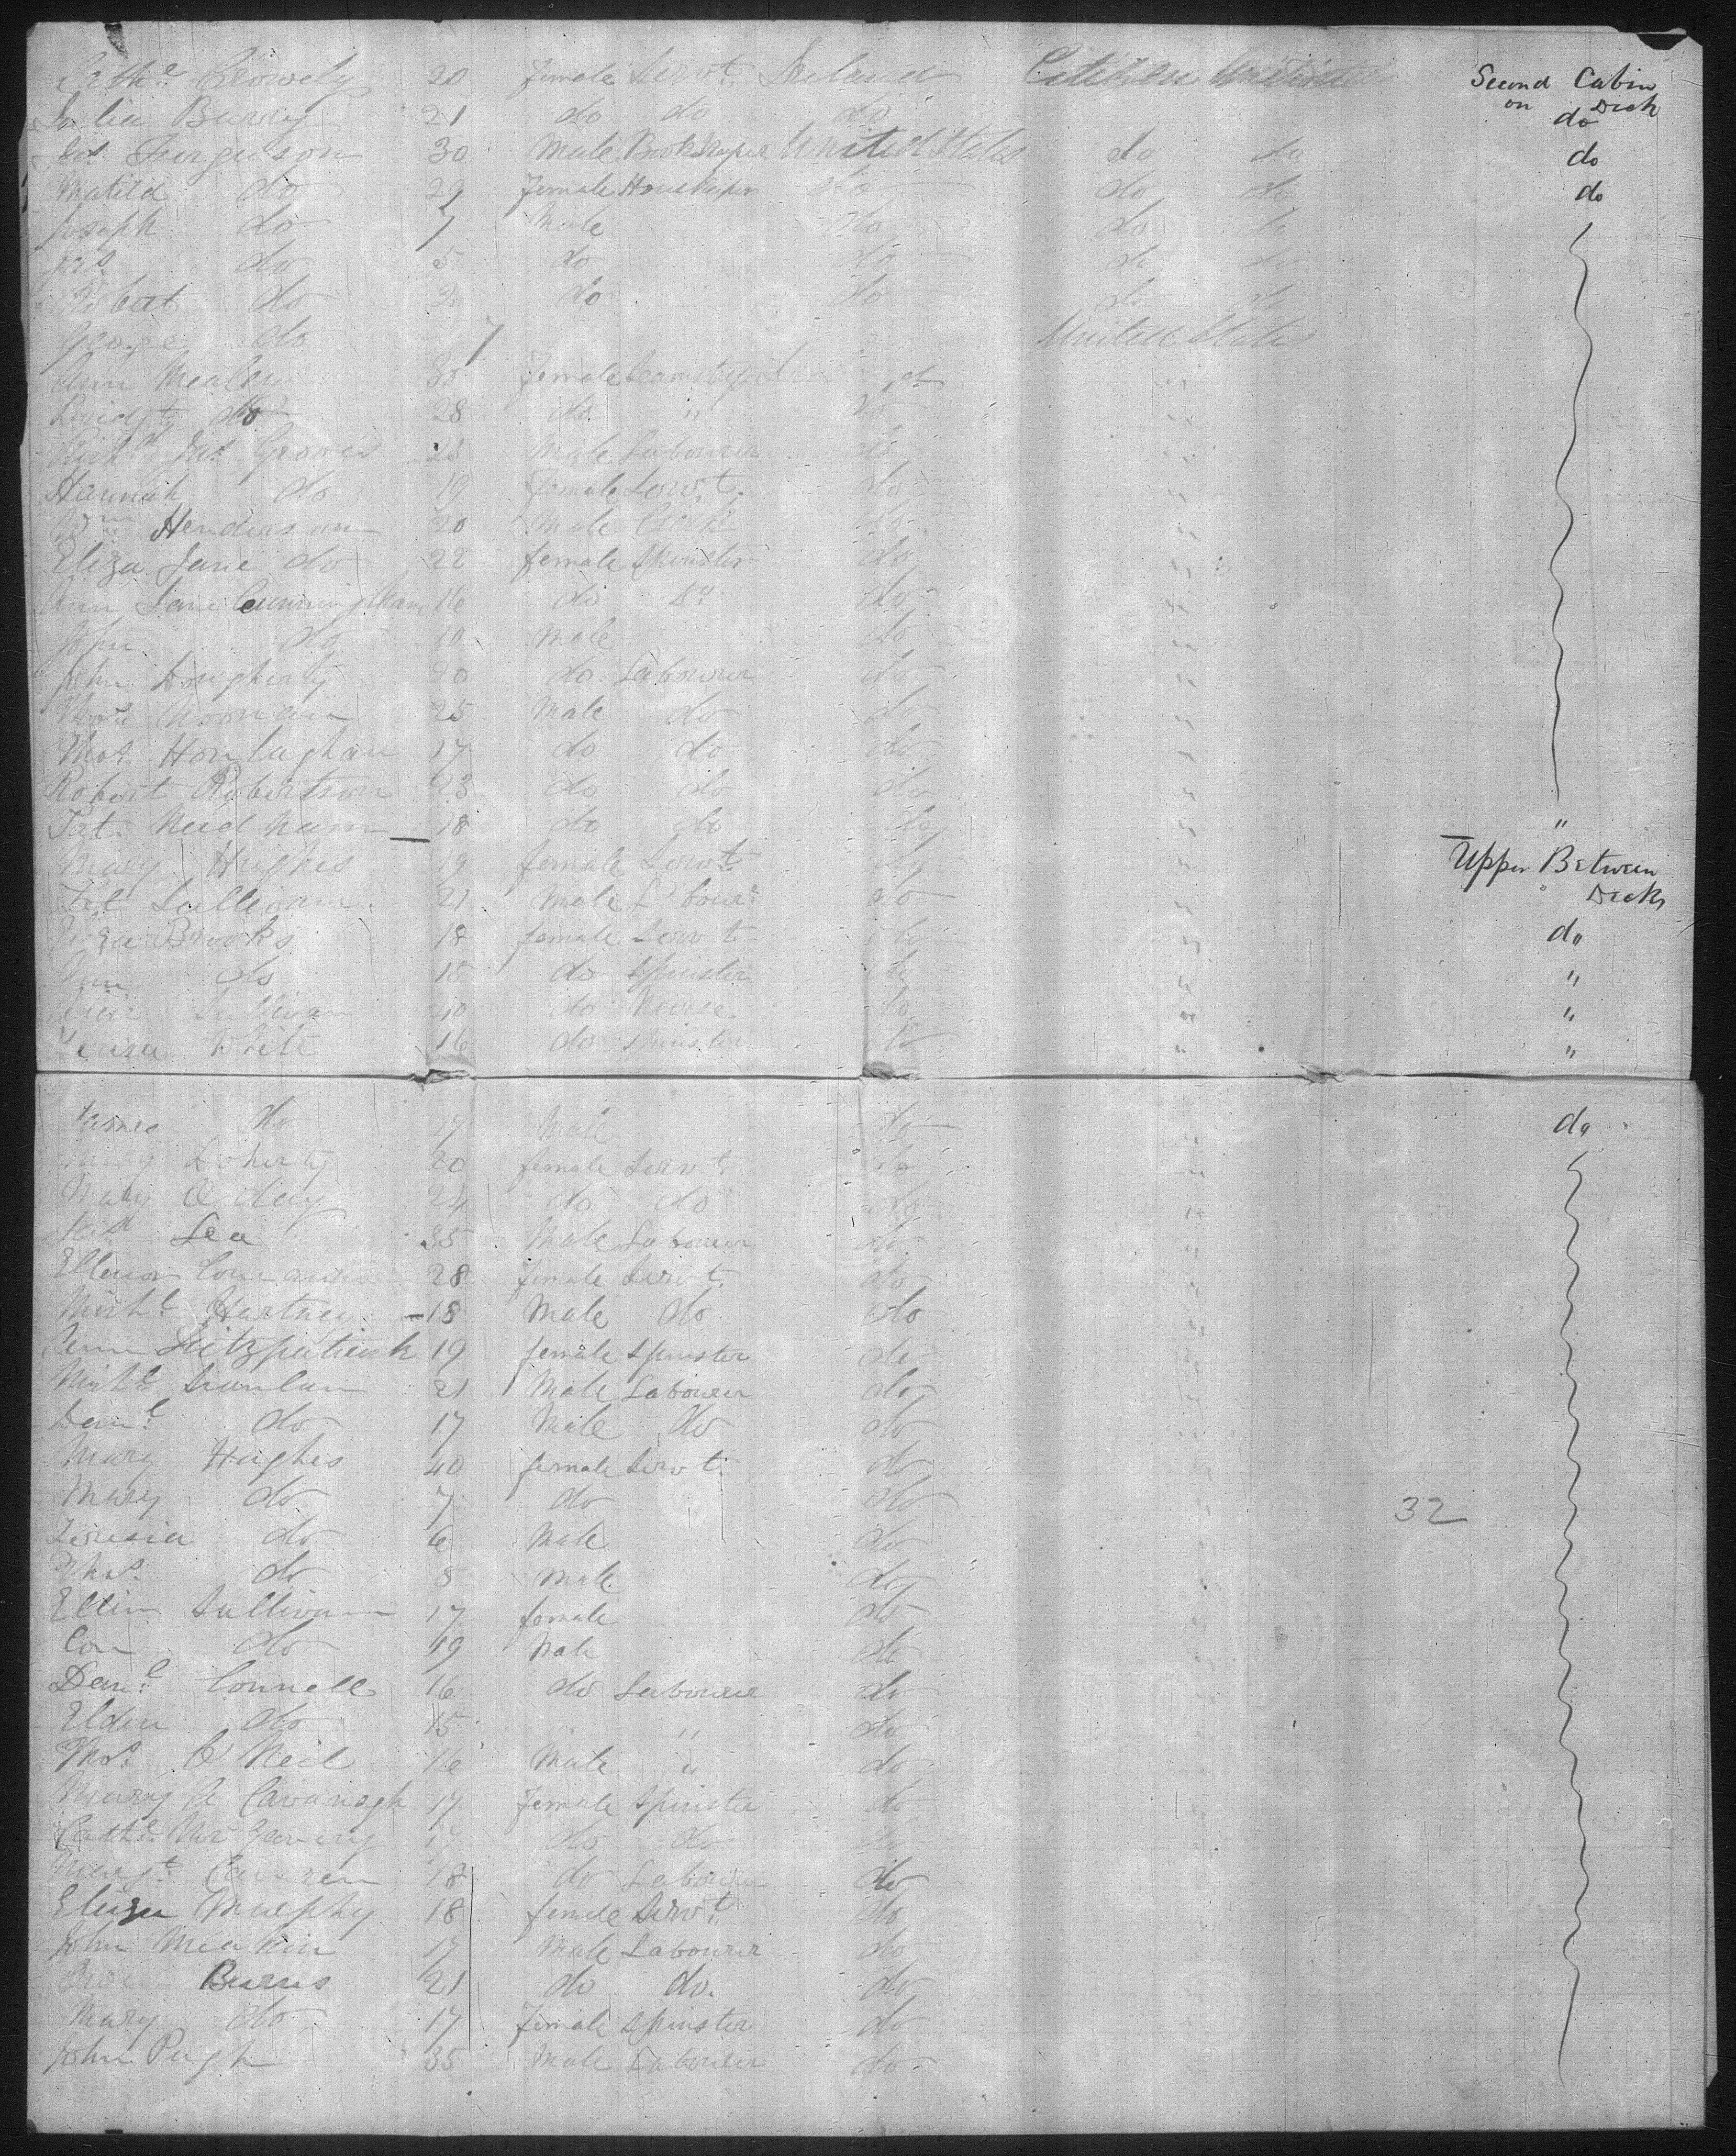 Cathe Crowely 20 female Servt Ireland Citizen United States Second Cabin on Deck
Julia Barry 21 do do do do
Jas Furguson 30 Male Bookkeeper United States do do do
Matild do 29 female Houskeper do do do do
Joseph do 7 Male do do do
Jas do 5 do do do do
Robert do 2 do do do do
George do United States
Ann Mealey 30 female
Bridgt do 28 do " do "
Richd Jas Groves 25 Male Labourer do "
Hannah do 19 female Servt do "
Wm Henderson 20 Male Clerk do "
Eliza Jane do 22 female Spinster do "
Ann Jane Cunningham 16 do Do do "
John do 10 male do "
John Dougherty 20 do Labourer do "
Noonan 25 Male do do "
Thos Honlaghan 17 do do do "
Robert Robertson 23 do do do "
Pat Needham 18 do do do " "
Mary Hughes 19 female Servt do " Upper Between Decks
Pat Sullivan 21 Male Labour do "
Brooks 18 female Servt do " do
Ann do 18 do Spinster do " "
Sullivan 40 do Nurse do " "
White 16 do spinster do " "
James do 17 Male do " do
Mary Doherty 20 female Servt do "
Mary O'day 24 do do do "
Lea 35 Male Labourer do "
Ellenor 28 female Servt do
Michl Hartney 18 Male do do
Ann Fitzpatrick 19 female Spinster do
Michl Scanlan 21 Male Labourer do
Danl do 17 Male do do
Mary Hughes 40 female Servt do
Mary do 7 do do 32
Teresia do 6 Male do
Thos do 5 male do
Ellen Sullivan 17 female do
Con do 19 Male do
Danl Connell 16 do Labourer do
Elden do 15 " do
Thos O'Neil 16 Male " do
Mary A Cavanagh 17 female Spinster do
Cathe 17 do do do
Margt Curren 18 do Labourer do
Eliza Murphy 18 female Servt do
John Meakin 17 Male Labourer do
Burns 21 do do. do
Mary do 17 female Spinster do
John Pugh 35 Male Labourer do